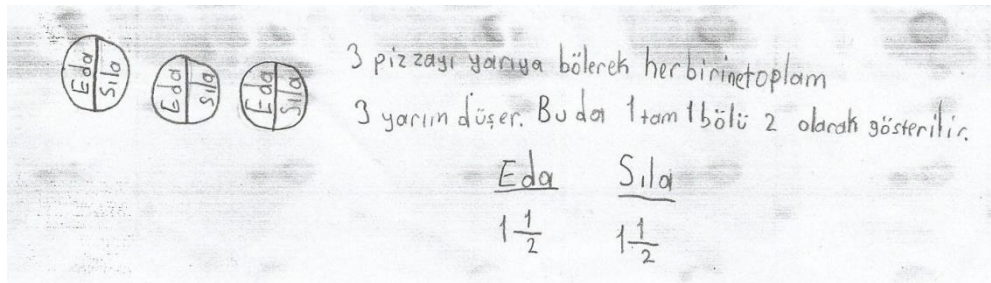 Eda Sıla
Eda Sıla
Eda Sıla
3 pizzayı yarıya bölerek herbirinetoplam
3 yarım düşer. Bu da 1 tam 1 bölü 2 olarak gösterilir.
Eda Sıla
1 1/2 1 1/2